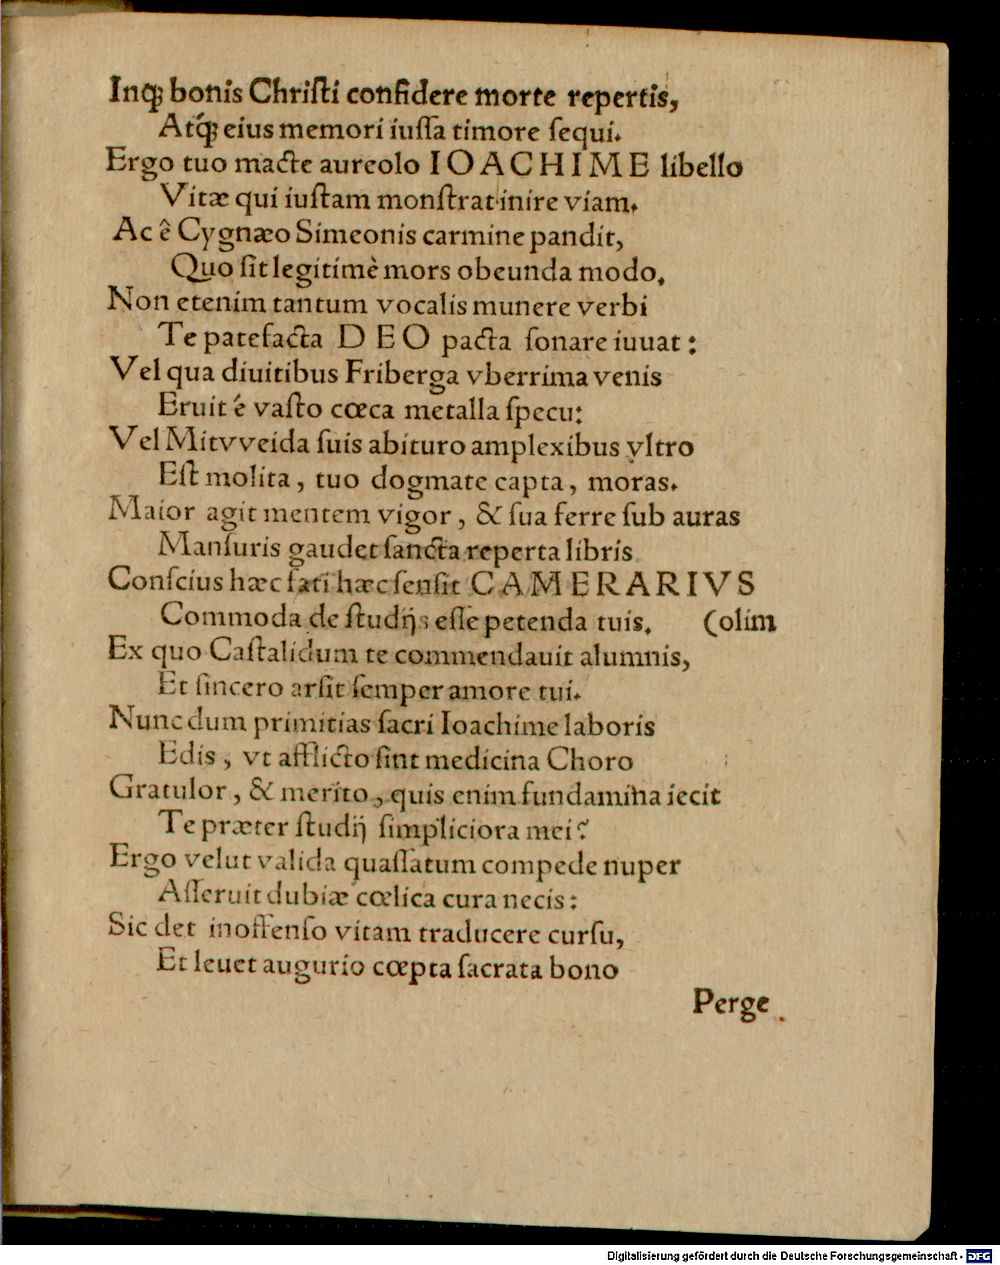 Inq́; bonis Chriſti confidere morte repertis,
Atq́; eius memori iuſſa timore ſequi.
Ergo tuo macte aureolo IOACHIME libello
Vitæ qui iuſtam monſtrat inire viam.
Ac ê Cygnæo Simeonis carmine pandit,
Quo ſit legitimè mors obeunda modo.
Non etenim tantum vocalis munere verbi
Te patefacta DEO pacta ſonare iuuat:
Vel qua diuitibus Friberga vberrima venis
Eruit é vaſto cœca metalla ſpecu:
Vel Mitvveida ſuis abituro amplexibus vltro
Eſt molita, tuo dogmate capta, moras.
Maior agit mentem vigor, & ſua ferre ſub auras
Manſuris gaudet ſancta reperta libris
Conſcius hæc fati hæc ſenſit CAMERARIVS
Commoda de ſtudijs eſſe petenda tuis. (olim
Ex quo Caſtalidum te commendauit alumnis,
Et ſincero arſit ſemper amore tui.
Nunc dum primitias ſacri Ioachime laboris
Edis, vt afflicto ſint medicina Choro
Gratulor, & merito, quis enim fundamina iecit
Te præter ſtudij ſimpliciora mei?
Ergo velut valida quaſſatum compede nuper
Aſſeruit dubiæ cœlica cura necis:
Sic det inoffenſo vitam traducere curſu,
Et leuet augurio cœpta ſacrata bono
Perge
Digitalisierung gefördert durch die Deutsche Forschungsgemeinschaft - DFG